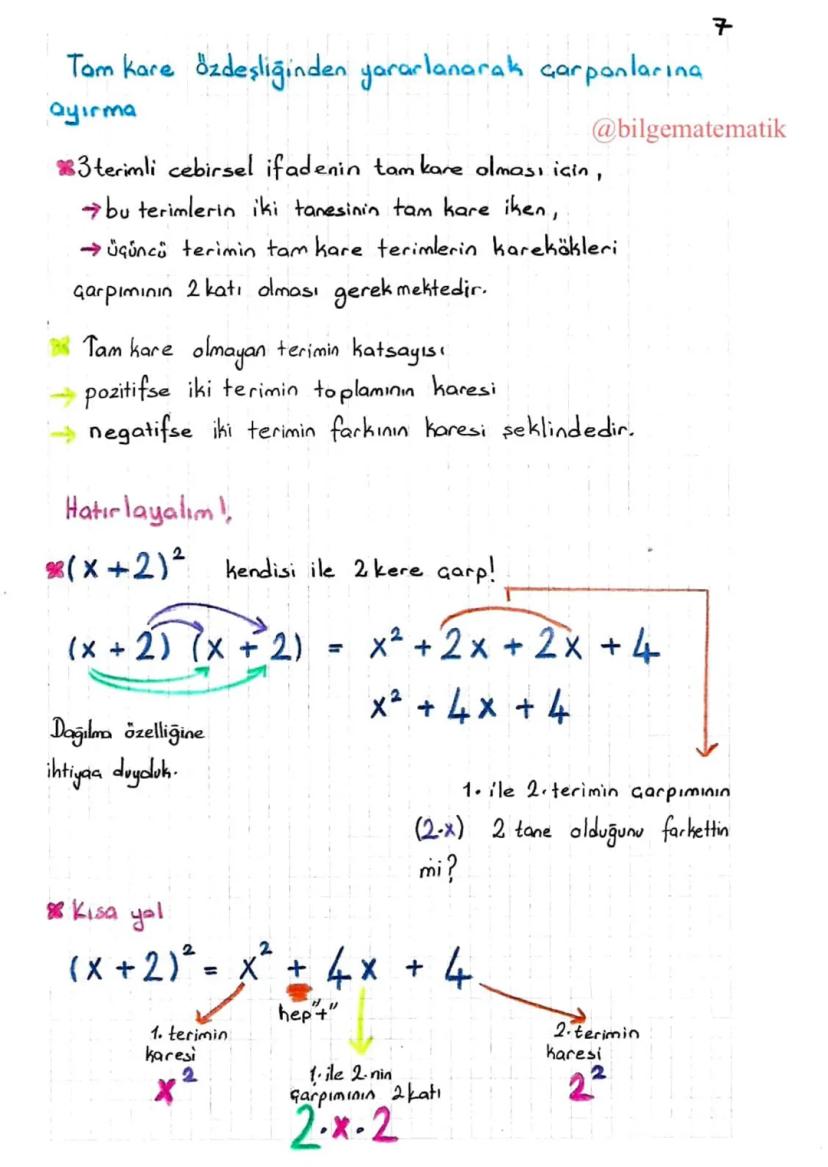 7
Tam kare özdeşliğinden yararlanarak çarpanlarına
ayırma
@bilgematematik
3 terimli cebirsel ifadenin tam kare olması için,
→ bu terimlerin iki tanesinin tam kare iken,
→ üçüncü terimin tam kare terimlerin karekökleri
çarpımının 2 katı olması gerekmektedir.
Tam kare olmayan terimin katsayısı
→ pozitifse iki terimin toplamının karesi
→ negatifse iki terimin farkının karesi şeklindedir.
Hatırlayalım!
(x + 2)² kendisi ile 2 kere çarp!
(x + 2) (x + 2) = x² + 2x + 2x + 4
x² + 4x + 4
Dağılma özelliğine
ihtiyaç duyduk.
1. ile 2. terimin çarpımının
(2.x) 2 tane olduğunu farkettin
mi?
Kısa yol
(x + 2)² = x² + 4x + 4
hep "+"
1. terimin
karesi
x²
1. ile 2.nin
çarpımının 2 katı
2.x.2
2. terimin
karesi
2²